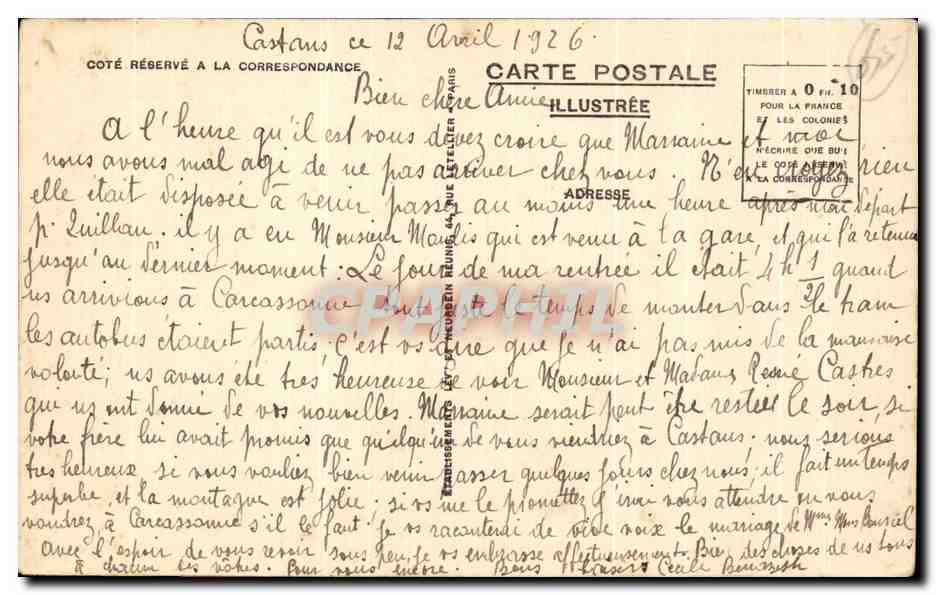 Castans ce 12 Avril 1926.
COTÉ RÉSERVÉ A LA CORRESPONDANCE
CARTE POSTALE
ILLUSTRÉE
ADRESSE
TIMBRER A 0 FR. 10
POUR LA FRANCE
ET LES COLONIES
N'ÉCRIRE QUE SUR
LE COTÉ RÉSERVÉ
A LA CORRESPONDANCE
ÉTABLISSEMENTS LÉVY ET NEURDEIN RÉUNIS 44, RUE LETELLIER - PARIS
Bien chère Amie
A l'heure qu'il est vous devez croire que Marraine et moi
nous avons mal agi de ne pas arriver chez vous. N'en croyez rien
elle était disposée à venir passer au moins une heure après mon départ
pr Quillan. il y a eu Monsieur qui est venu à la gare, et qui l'a retenue
jusqu'au dernier moment. Le jour de ma rentrée il était 4h 1/2 quand
ns arrivions à Carcassonne tout juste le temps de monter dans le tram
les autobus étaient partis; c'est vs dire que je n'ai pas mis de la mauvaise
volonté; ns avons été très heureuse de voir Monsieur et Madame René Castres
qui ns ont donné de vos nouvelles. Marraine serait peut être restée le soir, si
votre frère lui avait promis que quelqu'un de vous viendrez à Castans. nous serions
très heureux si vous vouliez bien venir passer quelques jours chez nous, il fait un temps
superbe et la montagne est jolie. si vs me le promettez j'irai vous attendre ou vous
voudrez à Carcassonne s'il le faut. Je vs raconterai de vive voix le mariage de
avec l'espoir de vous revoir sous peu, je vs embrasse affectueusement. Bien des choses de ns tous
à chacun des vôtres. Pour vous encore. Bons Baisers Cécile
CPAPHIL